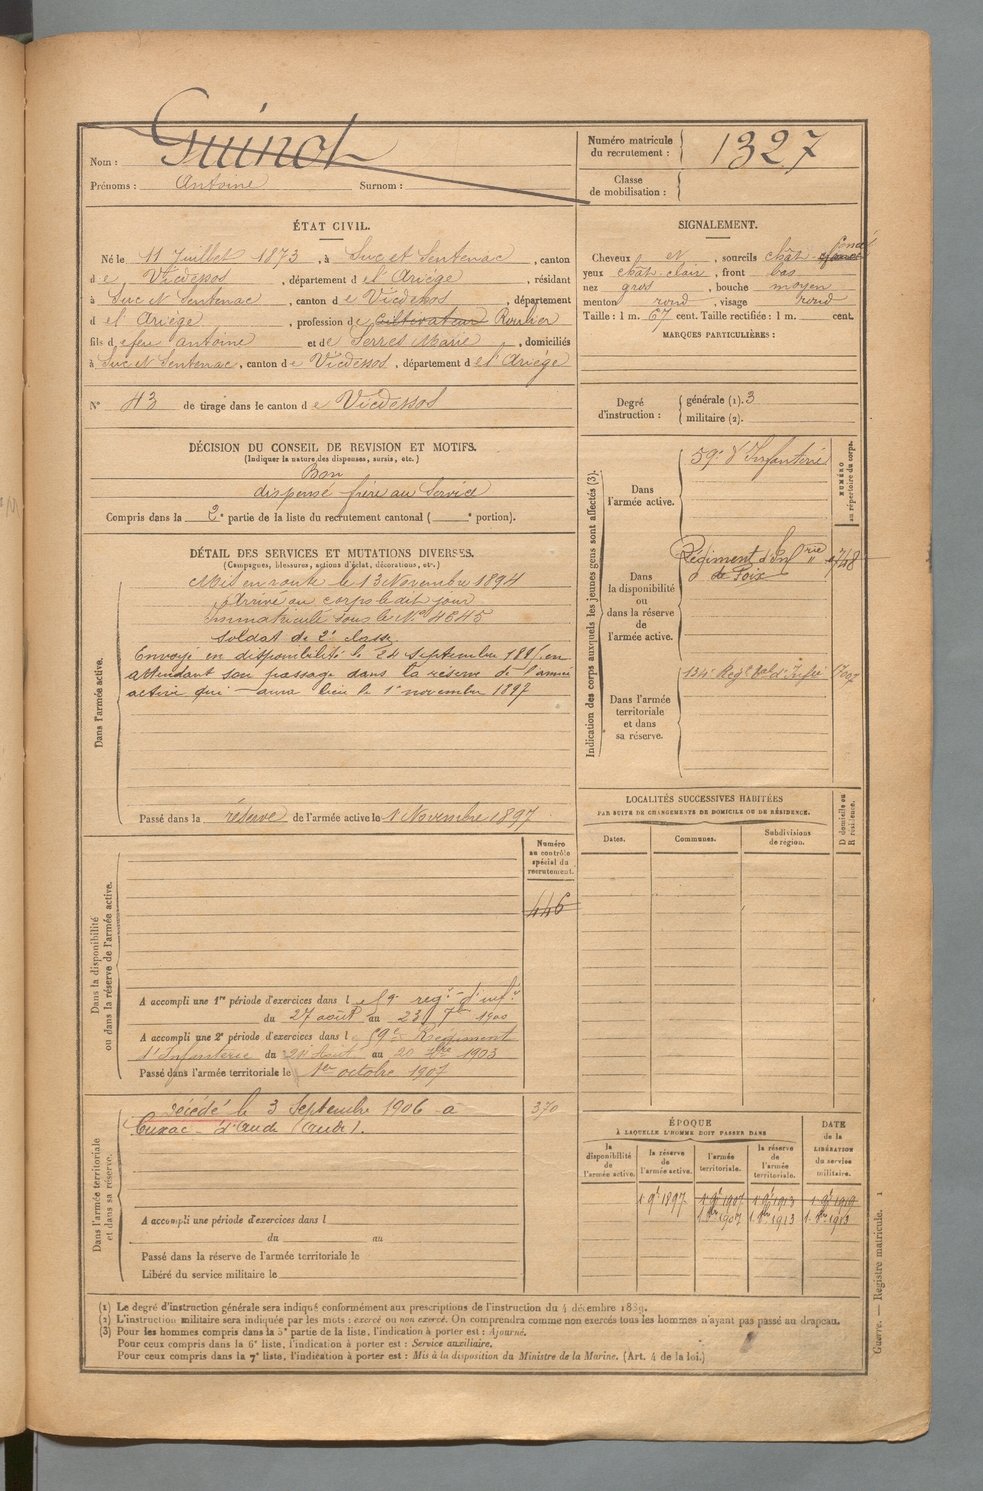 Nom : Guinot
Prénoms : Antoine Surnom :
Numéro matricule du recrutement : 1327
Classe de mobilisation :
ÉTAT CIVIL.
Né le 11 Juillet 1873, à Suc et Sentenac, canton
de Vicdessos, département de l'Ariège, résidant
à Suc et Sentenac, canton de Vicdessos, département
de l'Ariège, profession de cultivateur Roulier
fils de feu Antoine et de Serres Marie, domiciliés
à Suc et Sentenac, canton de Vicdessos, département de l'Ariège
N° 43 de tirage dans le canton de Vicdessos
SIGNALEMENT.
Cheveux et, sourcils chât. foncé
yeux chât. clair, front bas
nez gros, bouche moyen
menton rond, visage rond
Taille : 1 m. 67 cent. Taille rectifiée : 1 m. cent.
MARQUES PARTICULIÈRES :
Degré d'instruction : générale (1). 3
militaire (2).
DÉCISION DU CONSEIL DE REVISION ET MOTIFS.
(Indiquer la nature des dispenses, sursis, etc.)
Bon
dispensé frère au Service
Compris dans la 2e partie de la liste du recrutement cantonal ( e portion).
DÉTAIL DES SERVICES ET MUTATIONS DIVERSES.
(Campagnes, blessures, actions d'éclat, décorations, etc.)
Dans l'armée active.
Mis en route le 13 Novembre 1894
Arrivé au corps le dit jour
Immatriculé sous le No 4845
Soldat de 2e classe.
Envoyé en disponibilité le 24 septembre 189 en
attendant son passage dans la réserve de l'armée
active qui aura lieu le 1er novembre 1897
Passé dans la réserve de l'armée active le 1 Novembre 1897
Indication des corps auxquels les jeunes gens sont affectés (3).
Dans l'armée active.
59e d'Infanterie
NUMÉRO au répertoire du corps.
Dans la disponibilité ou dans la réserve de l'armée active.
Régiment d'Infrie
d° de Foix
Dans l'armée territoriale et dans sa réserve.
134e Regt tal d'Infie
LOCALITÉS SUCCESSIVES HABITÉES
PAR SUITE DE CHANGEMENTS DE DOMICILE OU DE RÉSIDENCE.
Dates. Communes. Subdivisions de région. D domicile ou R résidence.
Dans la disponibilité ou dans la réserve de l'armée active.
Numéro au contrôle spécial du recrutement.
446
A accompli une 1re période d'exercices dans l e 59e regt d'infie
du 27 août au 23 7bre 1900
A accompli une 2e période d'exercices dans l e 59e Régiment
d'Infanterie du Août au 20 7bre 1903
Passé dans l'armée territoriale le 1er octobre 1907
Dans l'armée territoriale et dans sa réserve.
Décédé le 3 Septembre 1906 à
Cuxac-d'Aude (Aude).
370
A accompli une période d'exercices dans l
du au
Passé dans la réserve de l'armée territoriale le
Libéré du service militaire le
ÉPOQUE
À LAQUELLE L'HOMME DOIT PASSER DANS
la disponibilité de l'armée active. la réserve de l'armée active. l'armée territoriale. la réserve de l'armée territoriale. DATE de la LIBÉRATION du service militaire.
1 9bre 1897 1 9bre 1907 1 9bre 1913 1 9bre 1919
(1) Le degré d'instruction générale sera indiqué conformément aux prescriptions de l'instruction du 4 décembre 1889.
(2) L'instruction militaire sera indiquée par les mots : exercé ou non exercé. On comprendra comme non exercés tous les hommes n'ayant pas passé au drapeau.
(3) Pour les hommes compris dans la 5e partie de la liste, l'indication à porter est : Ajourné.
Pour ceux compris dans la 6e liste, l'indication à porter est : Service auxiliaire.
Pour ceux compris dans la 7e liste, l'indication à porter est : Mis à la disposition du Ministre de la Marine. (Art. 4 de la loi.)
Guerre. — Registre matricule. 1